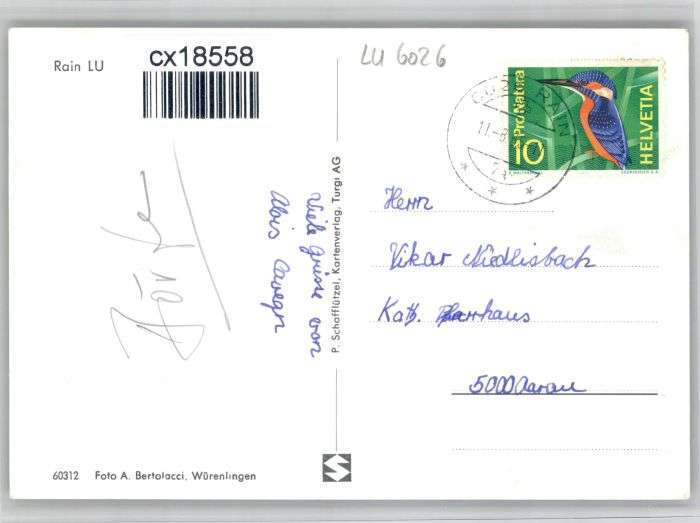 Rain LU
cx18558
LU 6026
Pro Natura
10
HELVETIA
Viele Grüsse von
Alois
P. Schafflützel, Kartenverlag, Turgi AG
Herrn
Vikar Niedlisbach
Kath. Pfarrhaus
5000 Aarau
60312 Foto A. Bertolacci, Würenlingen